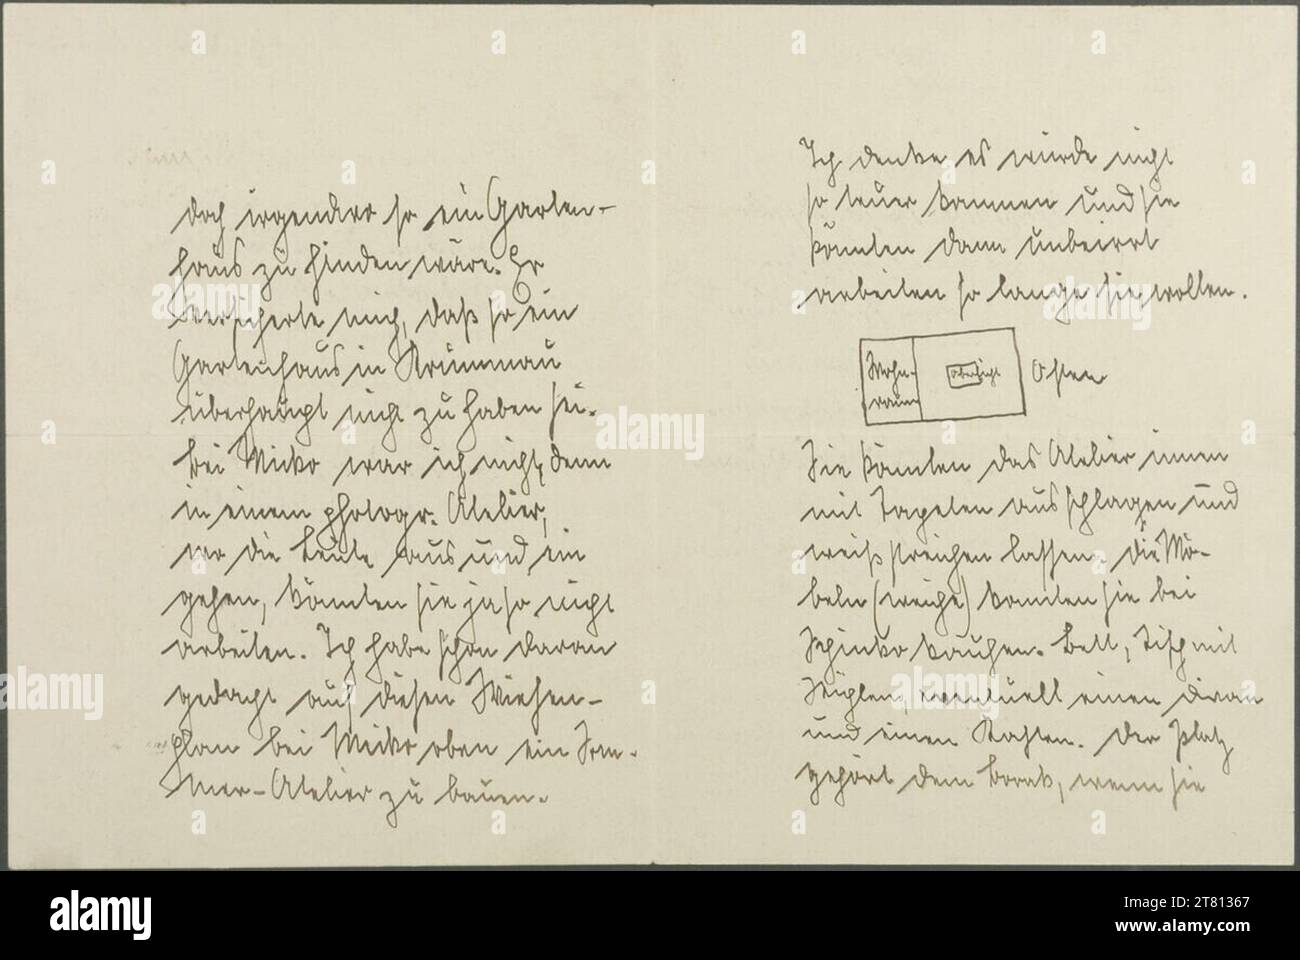 doch irgendwo so ein Garten-
haus zu finden wäre. Er
versicherte mich, daß so ein
Gartenhaus in Krummau
überhaupt nicht zu haben sei.
bei Micko war ich nicht, denn
in einem photogr. Atelier,
wo die Leute aus und ein
gehen, könnten sie ja so nicht
arbeiten. Ich habe schon daran
gedacht auf diesen Wiesen-
plan bei Micko oben ein Som-
mer-Atelier zu bauen.
Ich denke es würde nicht
so teuer kommen und sie
könnten dann unbeirrt
arbeiten so lange sie wollen.
Wohn-
raum
Oberlicht
Osten
Sie könnten das Atelier innen
mit Tapeten ausschlagen und
weiß streichen lassen. die Mö-
beln (weiche) könnten sie bei
Schinko kaufen. Bett, Tisch mit
Stühlen, eventuell einen Divan
und einen Kasten. Der Platz
gehört dem Borak, wenn sie
alamy
Image ID: 2T81367
www.alamy.com